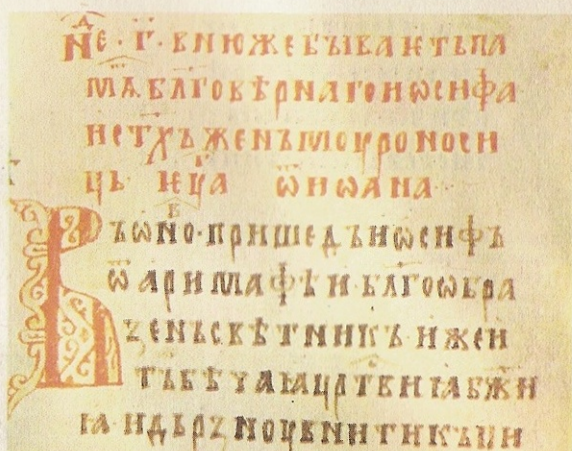 Нⷣе · г҃ · в нюже бываѥть па
мⷮѧ бл҃говѣрнаго иѡсифа
и ст҃хъ женъ мѹроноси
ць · еѵⷢ҇а ѿ иѡана
Въ ѡⷩ҇о · пришедъ иѡсифъ
ѿ аримафѣи · бл҃гоѡбра
зенъ свѣтникъ · иже и
тъ бѣ чаꙗ цр҃твиꙗ бж҃и
ꙗ и дьрзноувъ